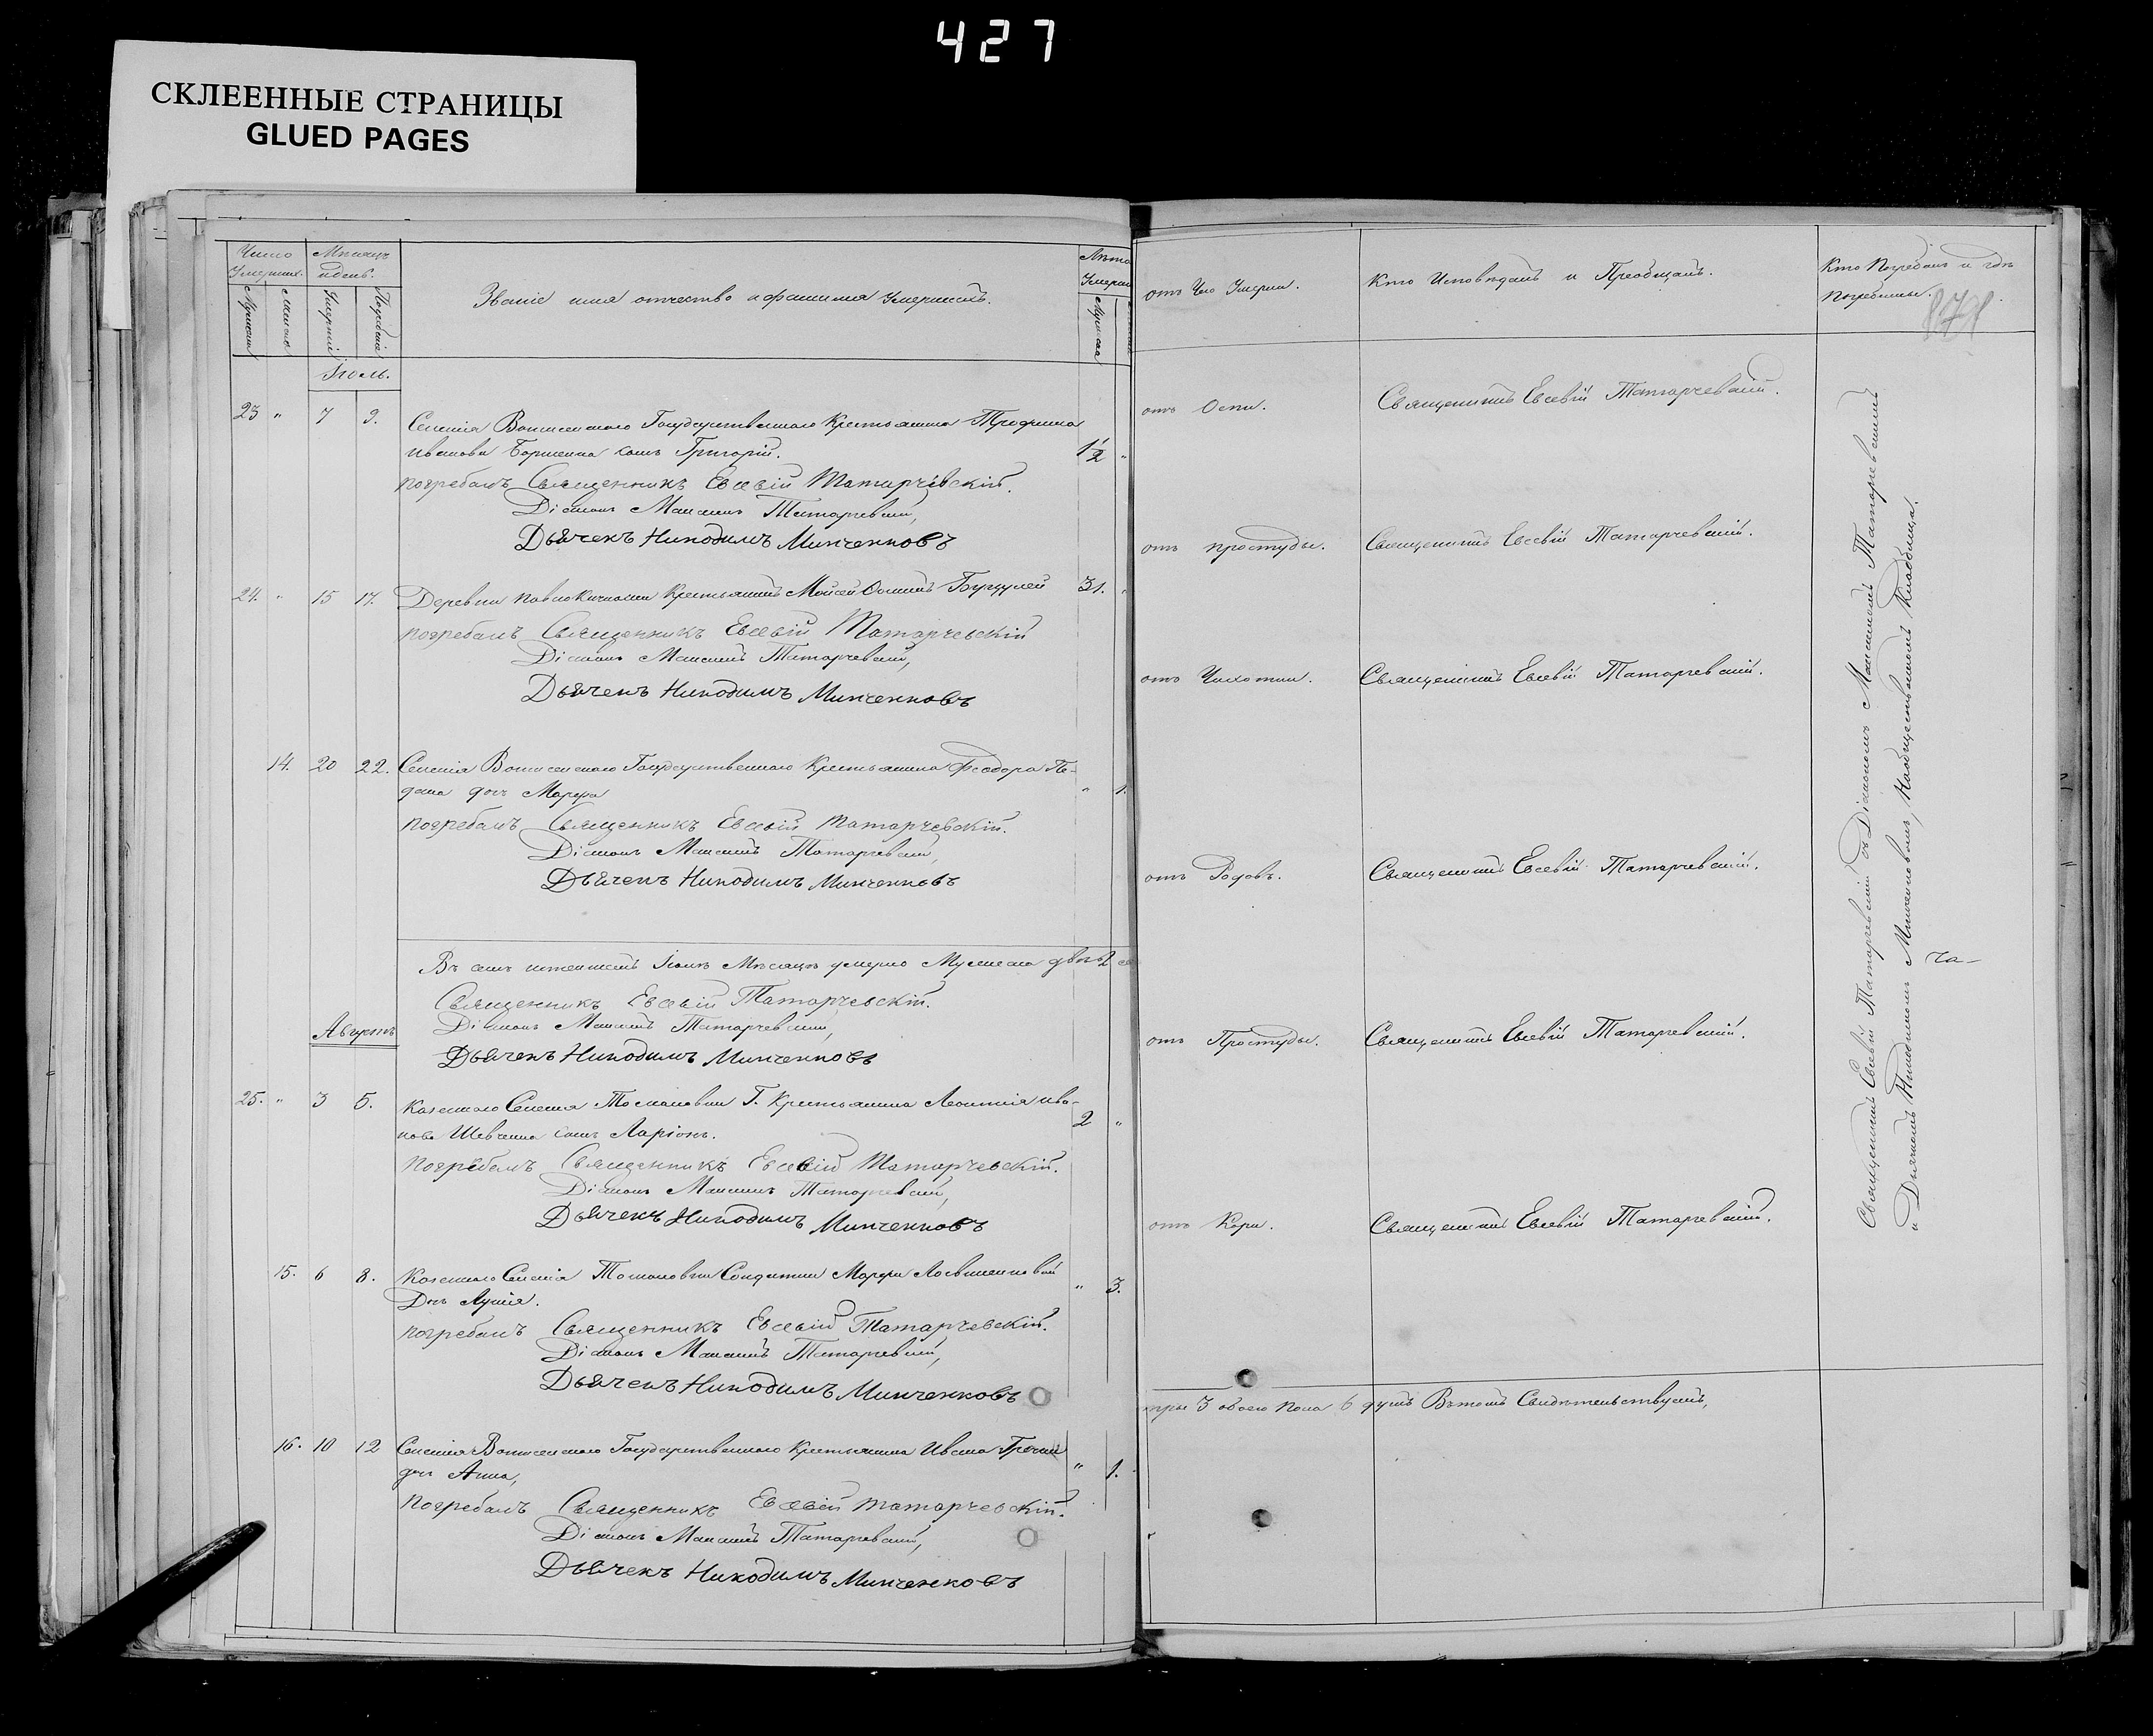 427
СКЛЕЕННЫЕ СТРАНИЦЫ
GLUED PAGES
Число
Умершихъ.
Мѣсяцъ
и день.
Званіе имя отчество и фамилия умершихъ.
Лѣта
Іюль.
23 " 7 9.
Селенія Государственнаго Крестьянина Трофима
Иванова сынъ Григорій.
1 1/2 "
погребалъ Священникъ Евсевій Татарчевскій.
Діаконъ Максимъ Татарчевскій,
Дьячекъ Никодимъ Минченковъ
24. " 15 17.
Деревни Крестьянинъ Мойсей
31.
погребалъ Священникъ Евсевій Татарчевскій
Діаконъ Максимъ Татарчевскій,
Дьячекъ Никодимъ Минченковъ
14. 20 22.
Селенія Государственнаго Крестьянина Феодора
дочь Марфа
" 1.
погребалъ Священникъ Евсевій Татарчевскій.
Діаконъ Максимъ Татарчевскій,
Дьячекъ Никодимъ Минченковъ
Іюлѣ Мѣсяцѣ умерло Мужеска двое 2
Священникъ Евсевій Татарчевскій.
Діаконъ Максимъ Татарчевскій,
Дьячекъ Никодимъ Минченковъ
Августъ
25. " 3 5.
Казеннаго Селенія Г. Крестьянина Леонтія Ива-
нова Шевченка сынъ Ларіонъ.
2 "
погребалъ Священникъ Евсевій Татарчевскій.
Діаконъ Максимъ Татарчевскій,
Дьячекъ Никодимъ Минченковъ
15. 6 8.
Казеннаго Селенія Солдатки Марфы
Дочь
" 3.
погребалъ Священникъ Евсевій Татарчевскій.
Діаконъ Максимъ Татарчевскій,
Дьячекъ Никодимъ Минченковъ
16. 10 12
Селенія Государственнаго Крестьянина Ивана
дочь Анна,
" 1.
погребалъ Священникъ Евсевій Татарчевскій.
Діаконъ Максимъ Татарчевскій,
Дьячекъ Никодимъ Минченковъ
отъ Чего Умерли.
Кто Исповѣдалъ и Преобщалъ.
Кто Погребалъ и гдѣ
Погребены.
878
отъ Оспи.
Священникъ Евсевій Татарчевскій.
отъ простуды.
Священникъ Евсевій Татарчевскій.
отъ Чихотки.
Священникъ Евсевій Татарчевскій.
отъ Родовъ.
Священникъ Евсевій Татарчевскій.
отъ Простуды.
Священникъ Евсевій Татарчевскій.
отъ Кори.
Священникъ Евсевій Татарчевскій.
Священникъ Евсевій Татарчевскій съ Діакономъ Максимомъ Татарчевскимъ
и Дьячкомъ Никодимомъ Минченковымъ, Кладбища.
три 3 обоего пола 6 душъ Въ томъ Свидѣтельствуемъ,